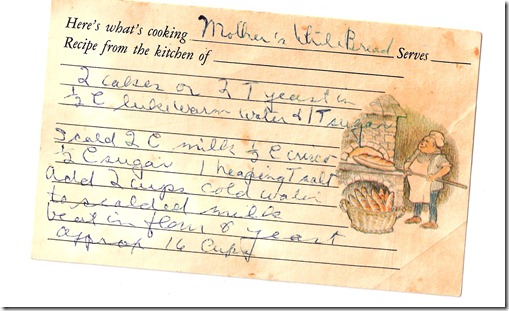 Here's what's cooking Mother's White Bread Serves
Recipe from the kitchen of
2 cakes or 2 T yeast in
½ C lukewarm water & 1T sugar
Scald 2 C milk ½ C crisco
½ C sugar 1 heaping T salt
add 2 cups cold water
to scalded milk
beat in flour & yeast
approx 16 cups